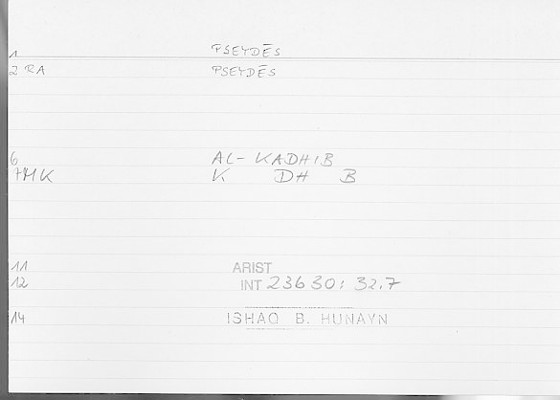 1 PSEYDĒS
2 RA PSEYDĒS
6 AL-KADHIB
7MK K DH B
11 ARIST
12 INT 23630: 32.7
14 ISHAQ B. HUNAYN